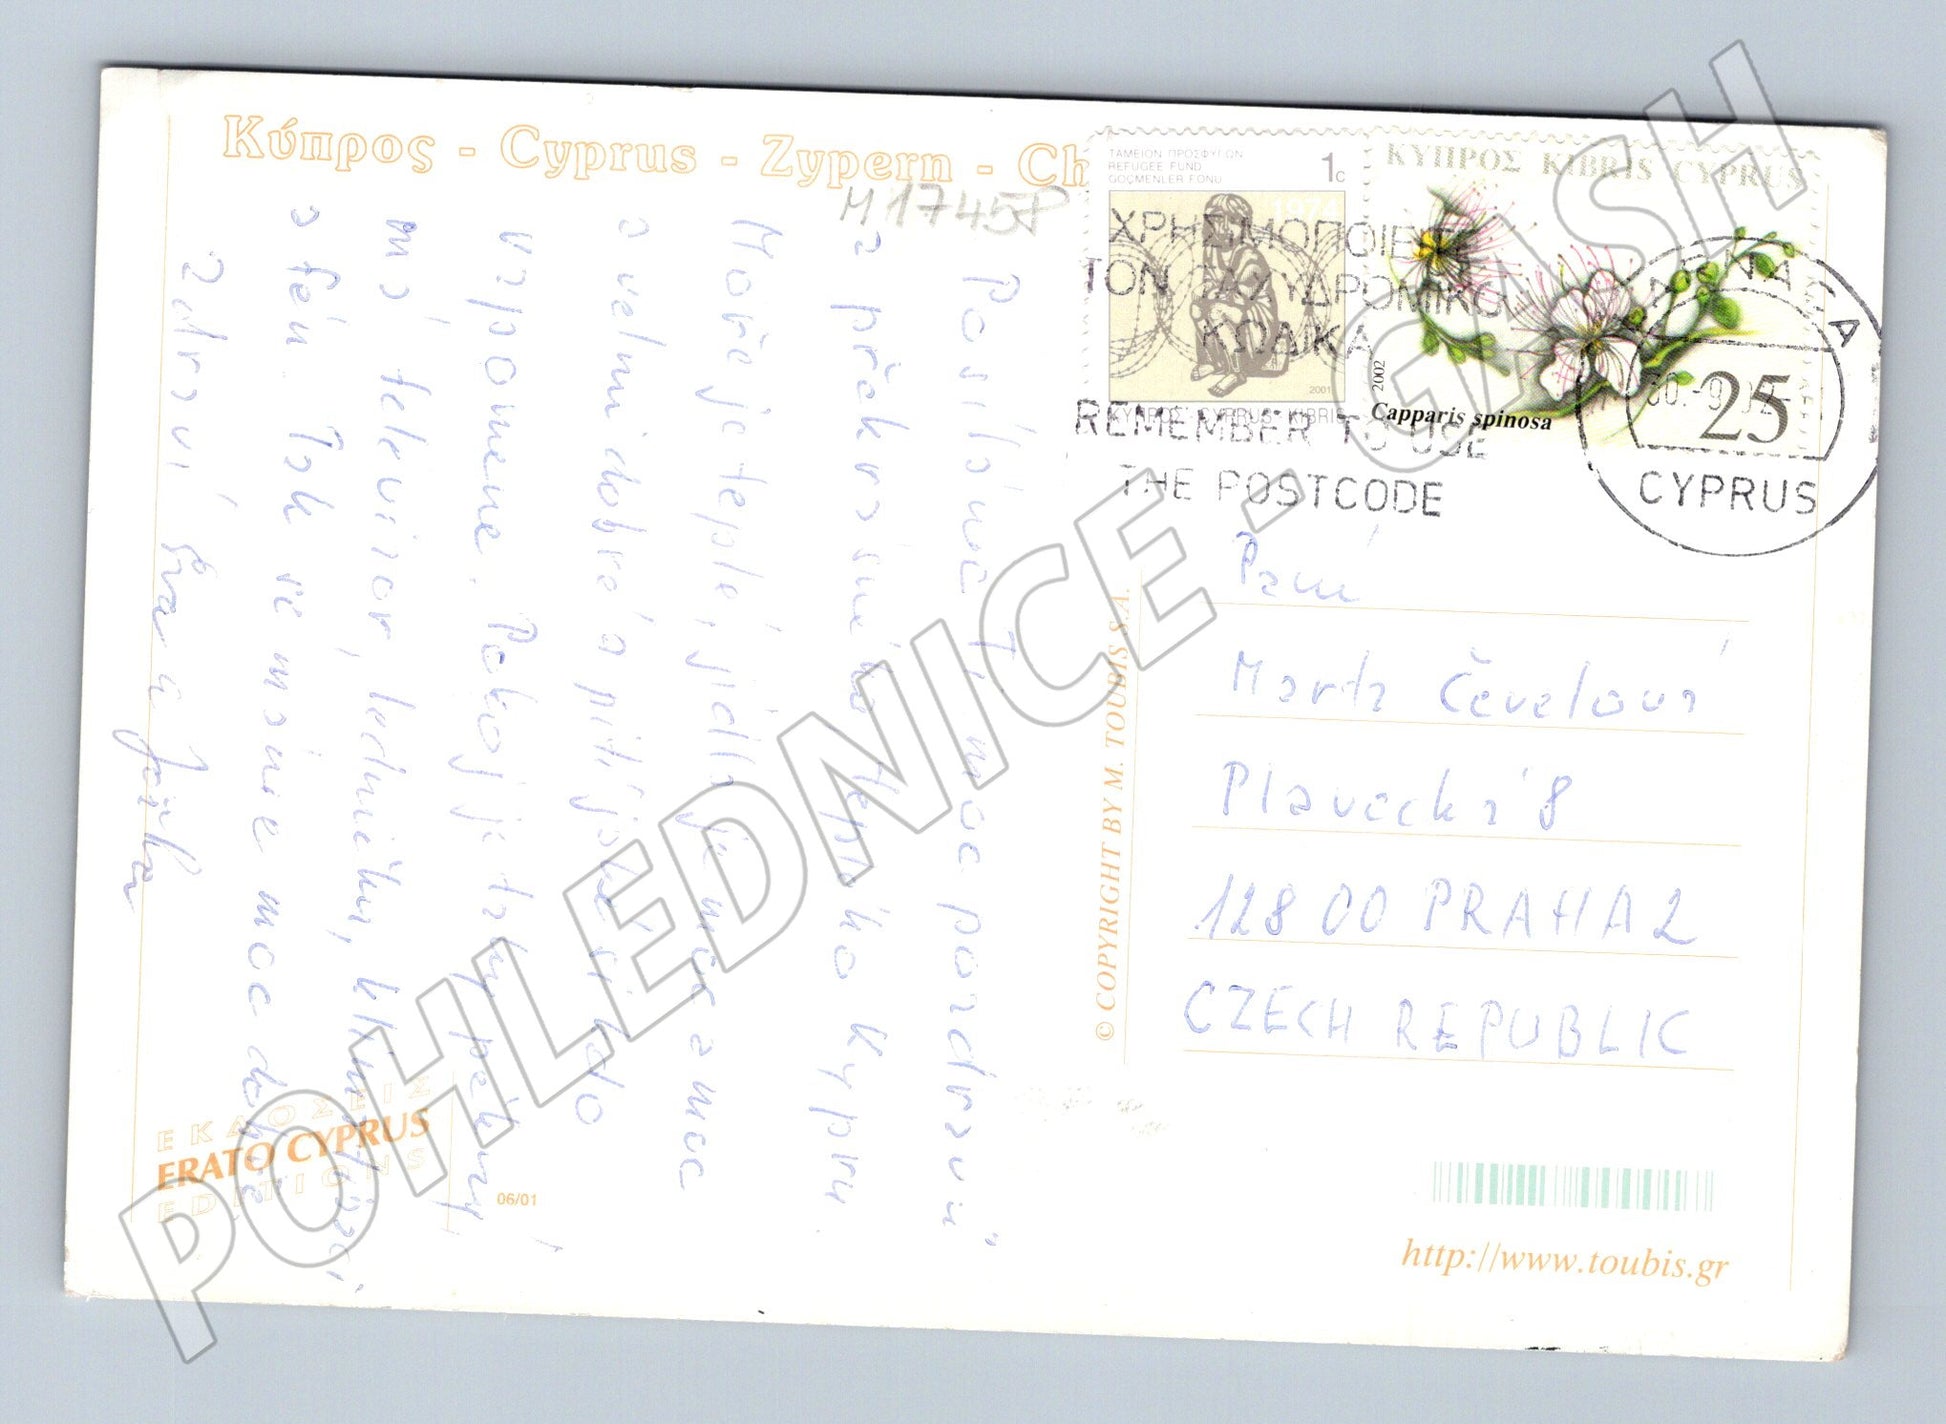 Κύπρος - Cyprus - Zypern - Ch
M 1745P
ΤΑΜΕΙΟΝ ΠΡΟΣΦΥΓΩΝ
REFUGEE FUND
GÖÇMENLER FONU
1c
1974
2001
ΚΥΠΡΟΣ CYPRUS KIBRIS
ΚΥΠΡΟΣ KIBRIS CYPRUS
2002
Capparis spinosa
25
ΧΡΗΣΙΜΟΠΟΙΕΙΤΕ
ΤΟΝ ΤΑΧΥΔΡΟΜΙΚΟ
ΚΩΔΙΚΑ
REMEMBER TO USE
THE POSTCODE
LARNACA
30.-9.02
CYPRUS
Posíláme Ti moc pozdravů
z překrásného teplého Kypru.
Moře je teplé, jídla je moc a moc
a velmi dobré a pití jaké si kdo
vzpomene. Pokoj je taky pěkný
má televizor, ledničku, klimatizaci
a fén. Tak se máme moc dobře
Zdraví Eva a Jarka
Paní
Marta Čevelová
Plavecká 8
128 00 PRAHA 2
CZECH REPUBLIC
© COPYRIGHT BY M. TOUBIS S.A.
ΕΚΔΟΣΕΙΣ
ERATO CYPRUS
EDITIONS
06/01
http://www.toubis.gr
POHLEDNICE - GASH